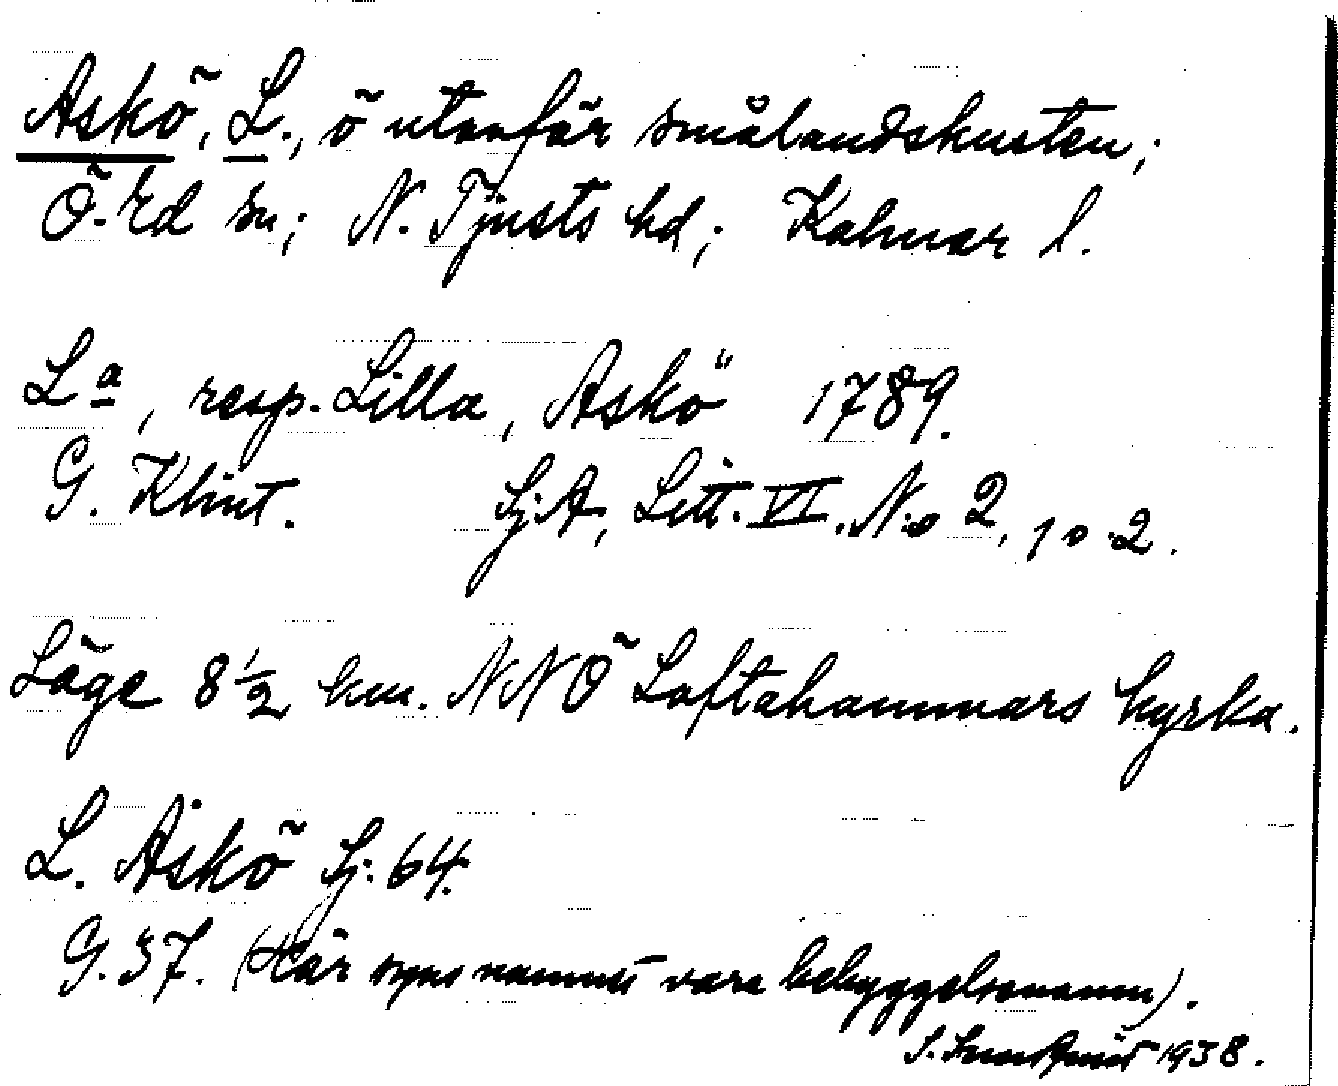 Askö, L., ö utanför smålandskusten;
Ö. Ed sn; N. Tjusts hd; Kalmar l.
La, resp. Lilla, Askö 1789.
G. Klint. Sj.A, Litt. VI. No 2, 1 o 2.
Läge 8 1/2 km. NNÖ Loftahammars kyrka.
L. Askö Sj. 64.
G. 37. (Här synes namnet vara bebyggelsenamn).
S. 1938.